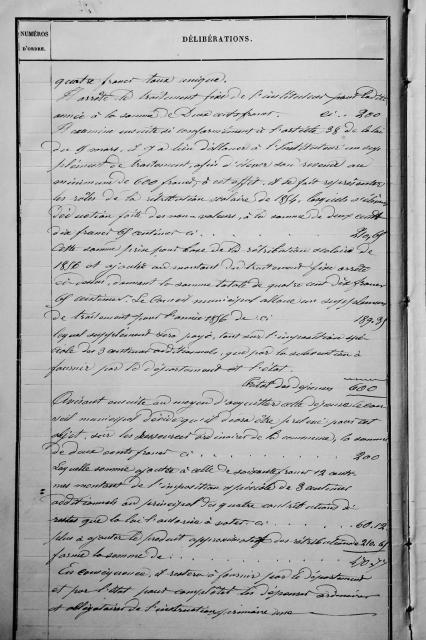 NUMÉROS
D'ORDRE.
DÉLIBÉRATIONS.
quatre francs taux unique.
Il arrête le traitement fixe de l'instituteur pour ladite
année à la somme de Deux cents francs. ci . . 200
Il examine ensuite si conformément à l'article 38 de la loi
du 15 mars, il y a lieu d'allouer à l'Instituteur un sup
plément de traitement, afin d'élever son revenu au
minimum de 600 francs; à cet effet, il se fait représenter
les rôles de la rétribution scolaire de 1854, lesquels s'élèvent
déduction faite des non-valeurs, à la somme de deux cent
dix francs 65 centimes ci . . . . . . 210,65
Cette somme prise pour base de la rétribution scolaire de
1856 et ajoutée au montant du traitement fixe arrêté
ci-dessus, donnant la somme totale de quatre cent dix francs
65 centimes. Le Conseil municipal alloue un supplément
de traitement pour l'année 1856 de ci 189,35
lequel supplément sera payé, tant sur l'imposition spé
ciale des 3 centimes additionnels, que par la subvention à
fournir par le département et l'état.
Total des dépenses 600
Avisant ensuite au moyen d'acquitter cette dépense le con
seil municipal décide qu'il devra être prélevé pour cet
objet, sur les ressources ordinaires de la commune, la somme
de deux cents francs ci . . . . . . 200
Laquelle somme ajoutée à celle de soixante francs 12 centi
mes montant de l'imposition spéciale de 3 centimes
additionnels au principal des quatre contributions di
rectes que la loi l'autorise à voter, ci . . . . . 60.12
plus à ajouter le produit approximatif des rétributions de 210.65
forme la somme de . . . . . . 470.77
En conséquence, il restera à fournir par le département
et par l'état pour compléter les dépenses ordinaires
et obligatoires de l'instruction primaire une